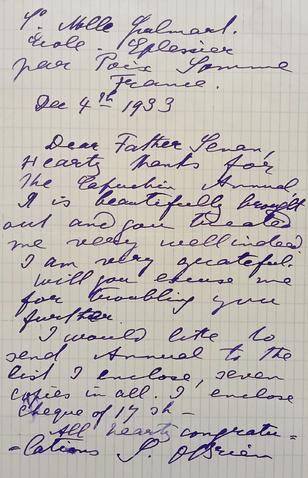 Nolle
Ecole. Eplessier
par Poix Somme
France.
Dec 4th 1933
Dear Father Senan,
Hearty thanks for
the Capuchin Annual.
It is beautifully brought
out and you treated
me very well indeed.
I am very grateful.
Will you excuse me
for troubling you
further.
I would like to
send Annual to the
list I enclose, seven
copies in all. I enclose
cheque of 17 sh -
All hearty congratu=
=lations S. O'Brien